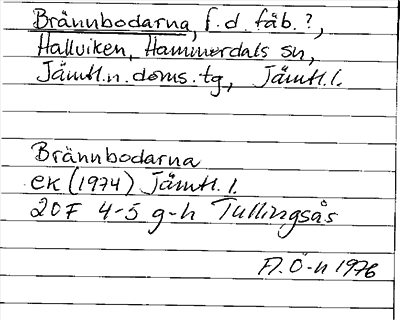 Brännbodarna, f.d. fäb.?,
Hallviken, Hammerdals sn,
Jämtl.n.doms.tg, Jämtl.l.
Brännbodarna
ek (1974) Jämtl. l.
20F 4-5 g-h Tullingsås
A.Ö-n 1976